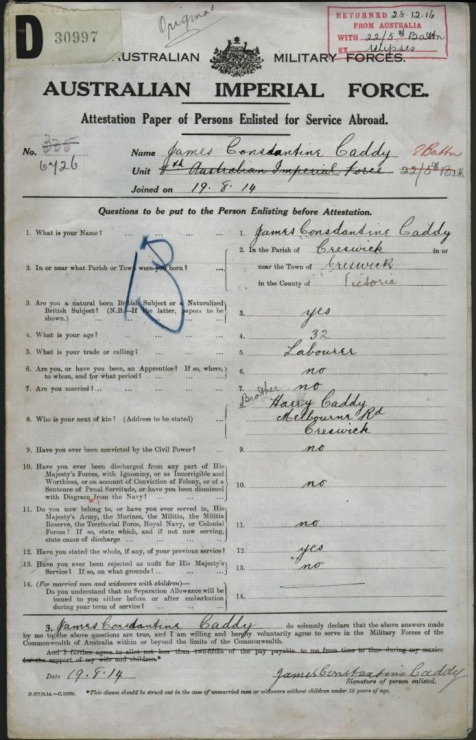 Original
D 30997
RETURNED 28.12.16
FROM AUSTRALIA
WITH 22/5th Battn
EX Ulysses
AUSTRALIAN MILITARY FORCES.
AUSTRALIAN IMPERIAL FORCE.
Attestation Paper of Persons Enlisted for Service Abroad.
No. 335 Name James Constantine Caddy 8 Battn
6726 Unit Australian Imperial Force 22/5th Batt
Joined on 19.8.14
Questions to be put to the Person Enlisting before Attestation.
1. What is your Name? ... ... ... ... 1. James Constantine Caddy
2. In or near what Parish or Town were you born? ... 2. In the Parish of Creswick in or
near the Town of Creswick
in the County of Victoria
3. Are you a natural born British Subject or a Naturalized
British Subject? (N.B.—If the latter, papers to be
shown.) ... ... 3. yes
4. What is your age? ... ... ... ... 4. 32
5. What is your trade or calling? ... ... ... 5. Labourer
6. Are you, or have you been, an Apprentice? If so, where,
to whom, and for what period? ... ... ... 6. no
7. Are you married? ... ... ... ... 7. no
8. Who is your next of kin? (Address to be stated) ... 8. Brother Harry Caddy
Melbourne Rd
Creswick
9. Have you ever been convicted by the Civil Power? ... 9. no
10. Have you ever been discharged from any part of His
Majesty's Forces, with Ignominy, or as Incorrigible and
Worthless, or on account of Conviction of Felony, or of a
Sentence of Penal Servitude, or have you been dismissed
with Disgrace from the Navy? ... ... 10. no
11. Do you now belong to, or have you ever served in, His
Majesty's Army, the Marines, the Militia, the Militia
Reserve, the Territorial Force, Royal Navy, or Colonial
Forces? If so, state which, and if not now serving,
state cause of discharge ... ... ... 11. no
12. Have you stated the whole, if any, of your previous service? 12. yes
13. Have you ever been rejected as unfit for His Majesty's
Service? If so, on what grounds? ... ... 13. no
14. (For married men and widowers with children)—
Do you understand that no Separation Allowance will be
issued to you either before or after embarkation
during your term of service? ... ... 14.
I, James Constantine Caddy do solemnly declare that the above answers made
by me to the above questions are true, and I am willing and hereby voluntarily agree to serve in the Military Forces of the
Commonwealth of Australia within or beyond the limits of the Commonwealth.
And I further agree to allot not less than two-fifths of the pay payable to me from time to time during my service
for the support of my wife and children.*
Date 19.8.14 James Constantine Caddy
Signature of person enlisted.
*This clause should be struck out in the case of unmarried men or widowers without children under 18 years of age.